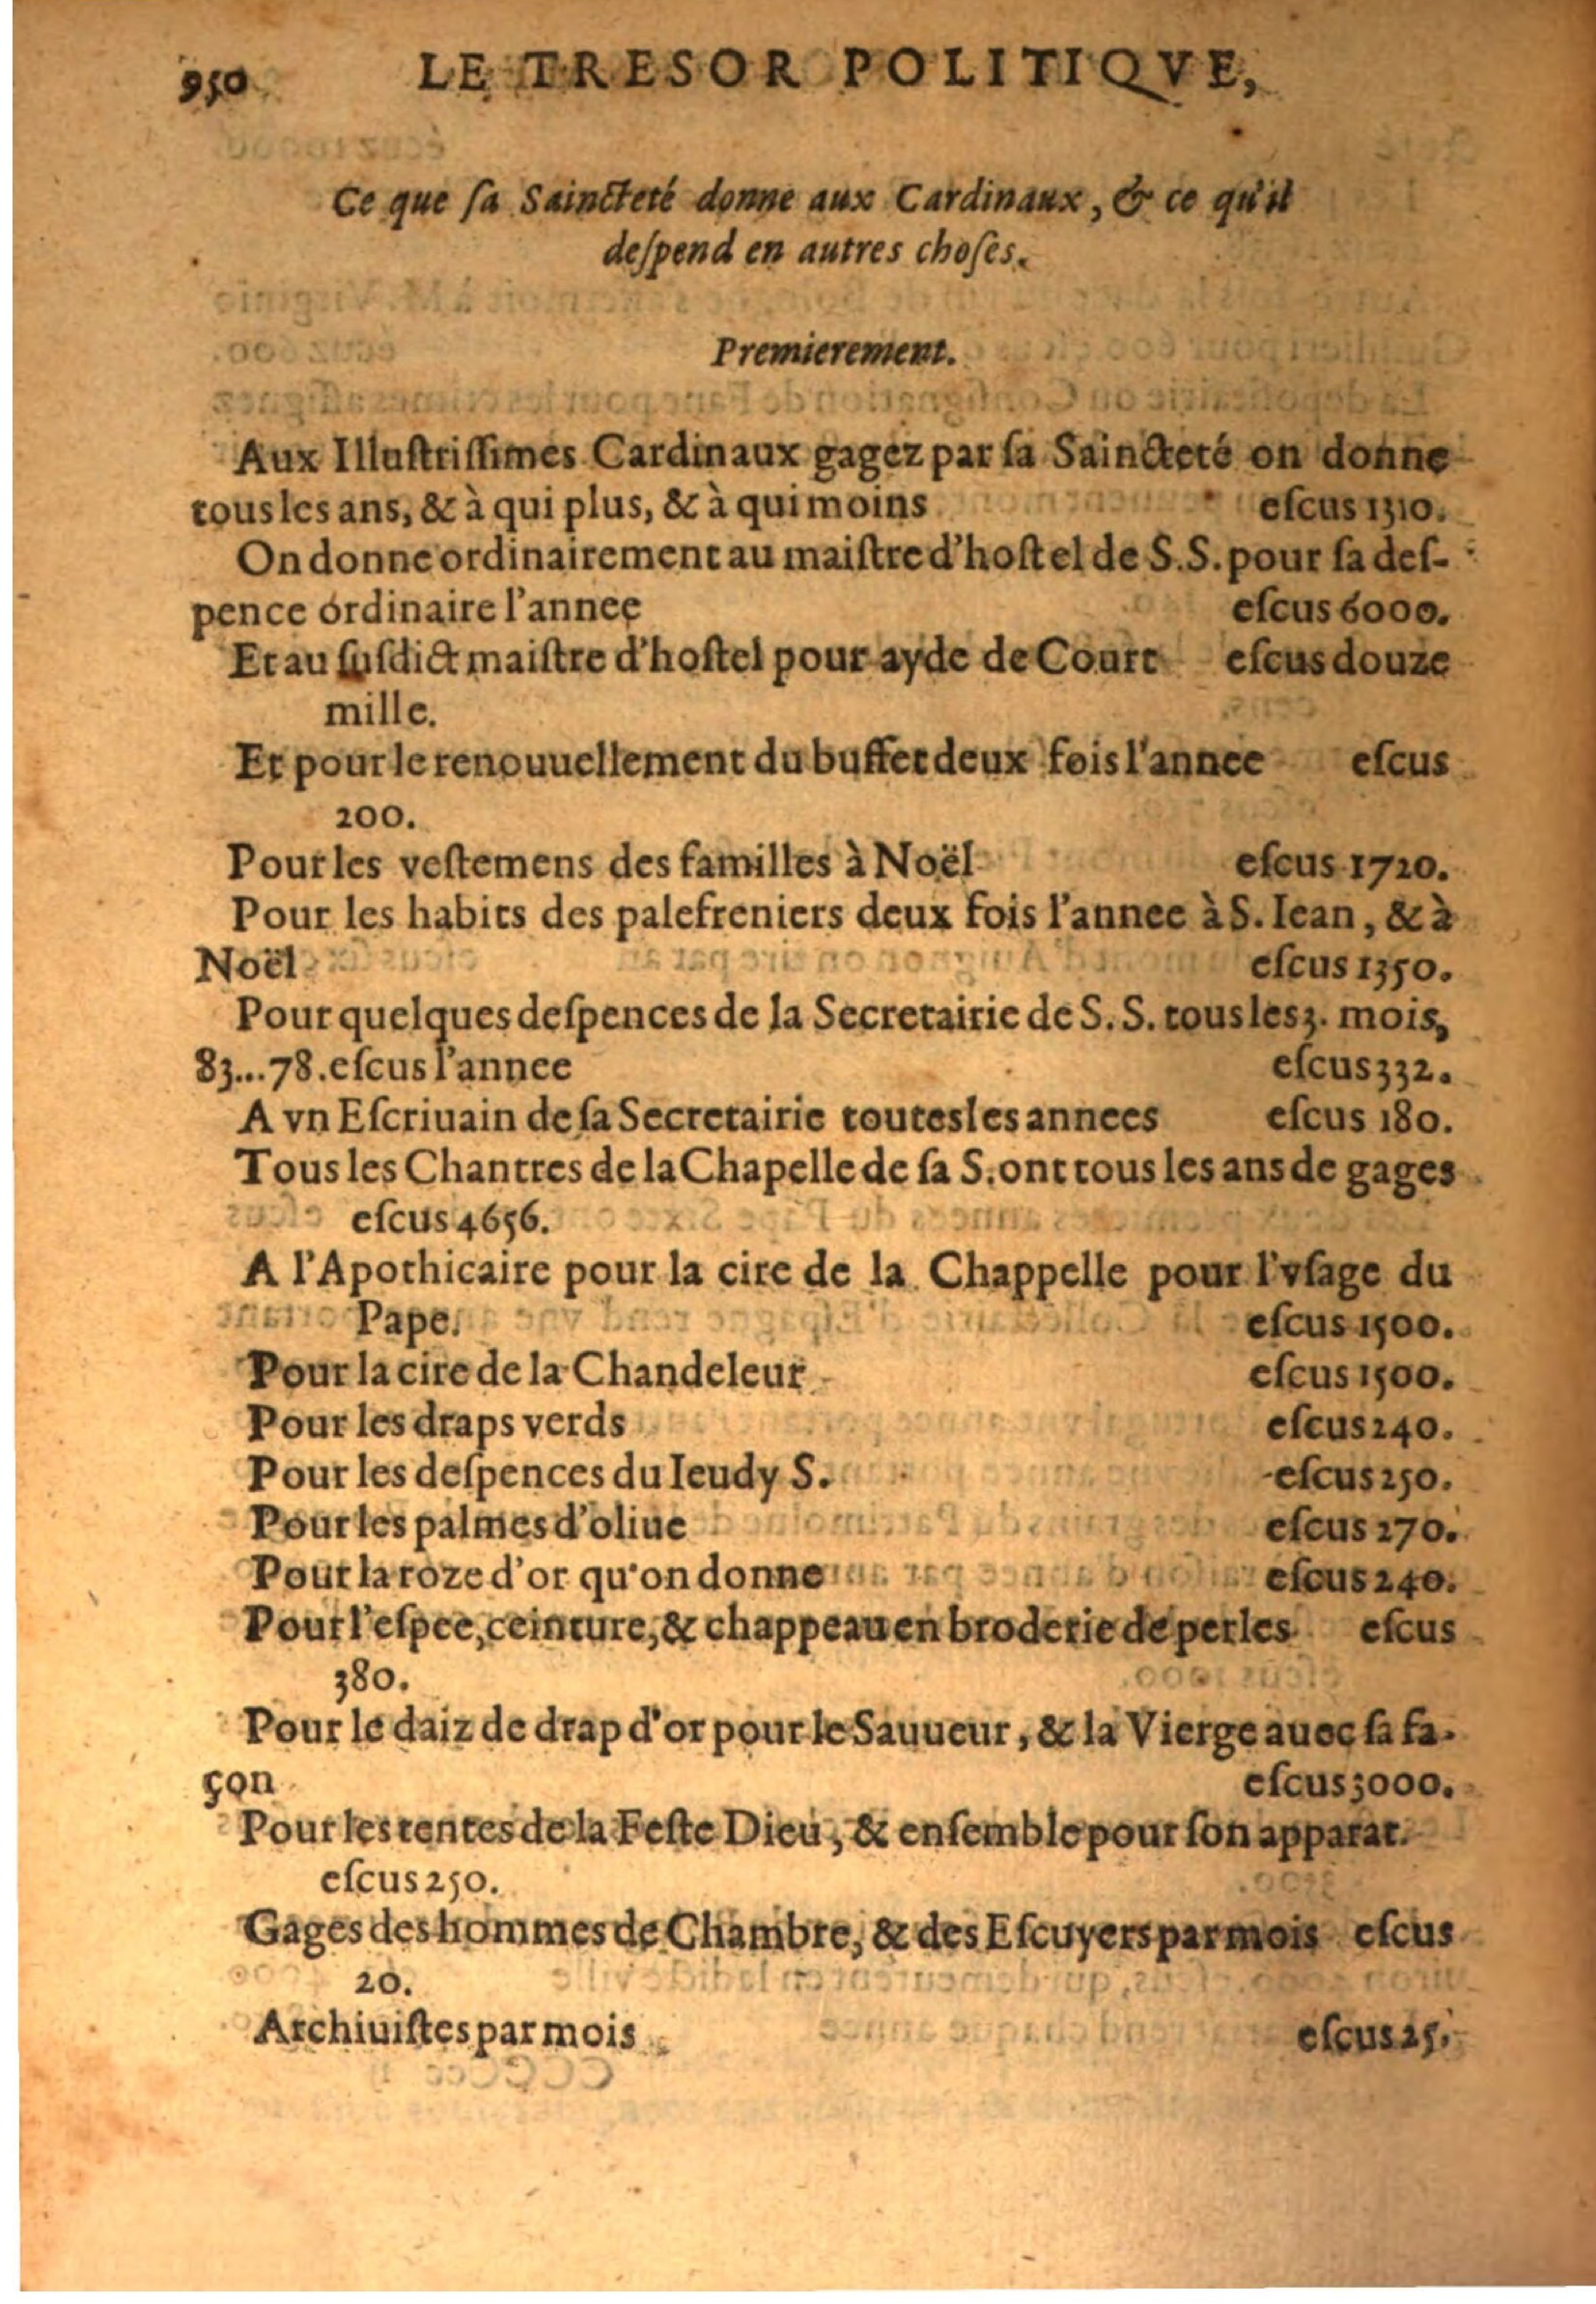 950 LE TRESOR POLITIQVE,
Ce que ſa Saincteté donne aux Cardinaux, & ce qu'il
deſpend en autres choſes.
Premierement.
Aux Illuſtriſſimes Cardinaux gagez par ſa Saincteté on donne
tous les ans, & à qui plus, & à qui moins eſcus 1310.
On donne ordinairement au maiſtre d'hoſtel de S.S. pour ſa deſ-
pence ordinaire l'annee eſcus 6000.
Et au ſuſdict maiſtre d'hoſtel pour ayde de Court eſcus douze
mille.
Et pour le renouuellement du buffet deux fois l'annee eſcus
200.
Pour les veſtemens des familles à Noël eſcus 1720.
Pour les habits des palefreniers deux fois l'annee à S. Iean, & à
Noël eſcus 1350.
Pour quelques deſpences de la Secretairie de S. S. tous les 3. mois,
83...78. eſcus l'annee eſcus 332.
A vn Eſcriuain de ſa Secretairie toutes les annees eſcus 180.
Tous les Chantres de la Chapelle de ſa S. ont tous les ans de gages
eſcus 4656.
A l'Apothicaire pour la cire de la Chappelle pour l'vſage du
Pape. eſcus 1500.
Pour la cire de la Chandeleur eſcus 1500.
Pour les draps verds eſcus 240.
Pour les deſpences du Ieudy S. eſcus 250.
Pour les palmes d'oliue eſcus 270.
Pour la roze d'or qu'on donne eſcus 240.
Pour l'eſpee, ceinture, & chappeau en broderie de perles eſcus
380.
Pour le daiz de drap d'or pour le Sauueur, & la Vierge auec ſa fa-
çon eſcus 3000.
Pour les tentes de la Feſte Dieu, & enſemble pour ſon apparat.
eſcus 250.
Gages des hommes de Chambre, & des Eſcuyers par mois eſcus
20.
Archiuiſtes par mois eſcus 25.